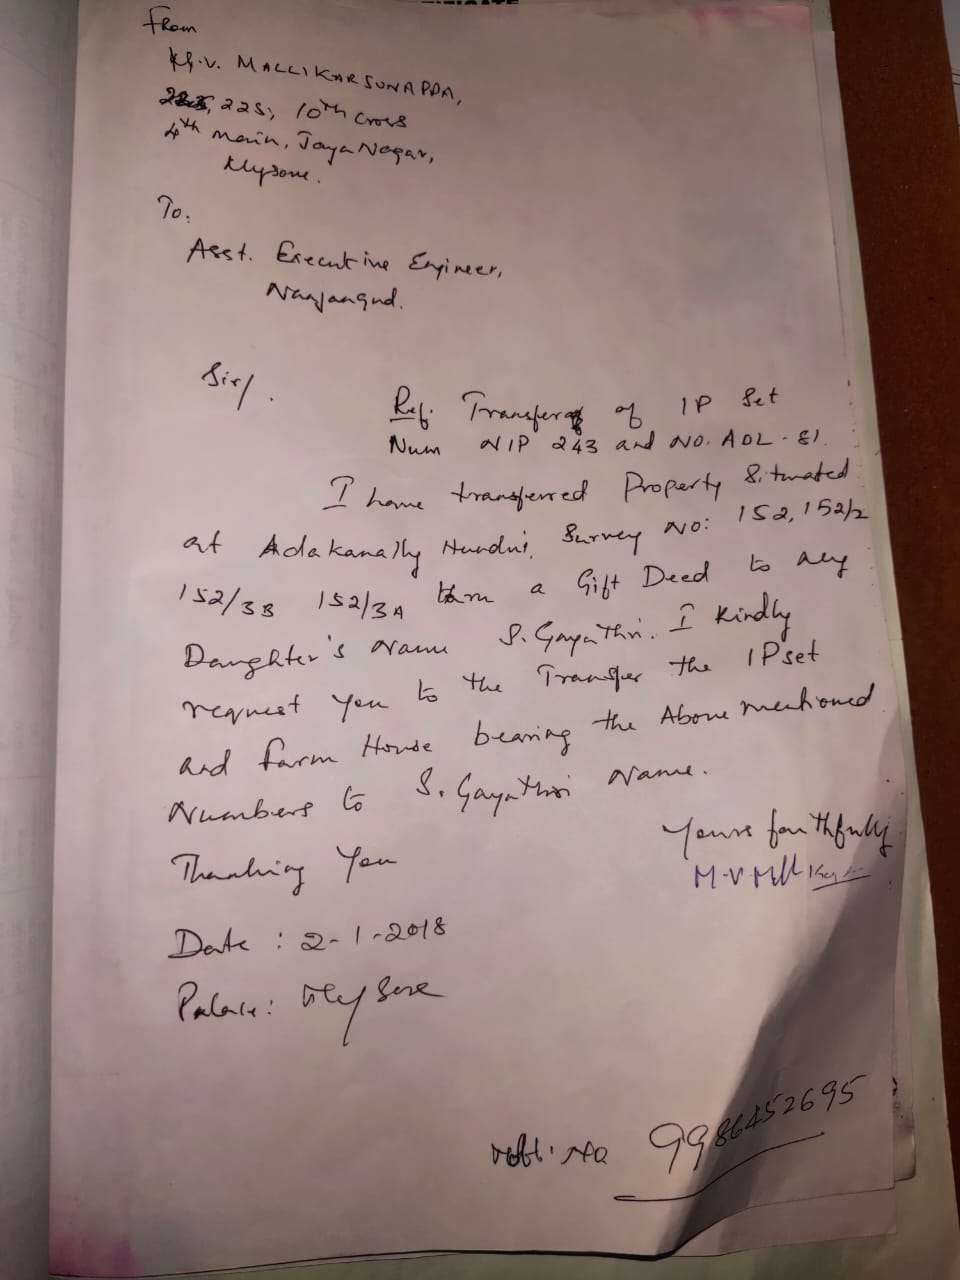 From
M.V. MALLIKARJUNAPPA,
225, 10th Cross
4th main, JayaNagar,
Mysore.
To.
Asst. Executive Engineer,
Nanjangud.
Sir/.
Ref. Transfer of IP Set
Num NIP 243 and NO. ADL-81.
I have transferred Property Situated
at Adakanally Hundi, Survey No: 152, 152/2
152/3B 152/3A a Gift Deed to my
Daughter's Name S. Gayathri. I Kindly
request you to the Transfer the IP set
and farm House bearing the Above mentioned
Numbers to S. Gayathri Name.
Yours faithfully
Thanking You
M.V Mllik
Date : 2-1-2018
Palace: Mysore
Mobl. No 9986452695